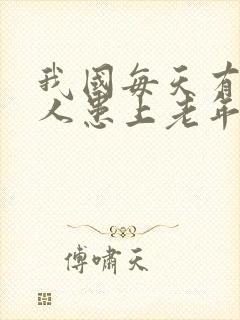 我國每天有
人患上老年
傅嘯天